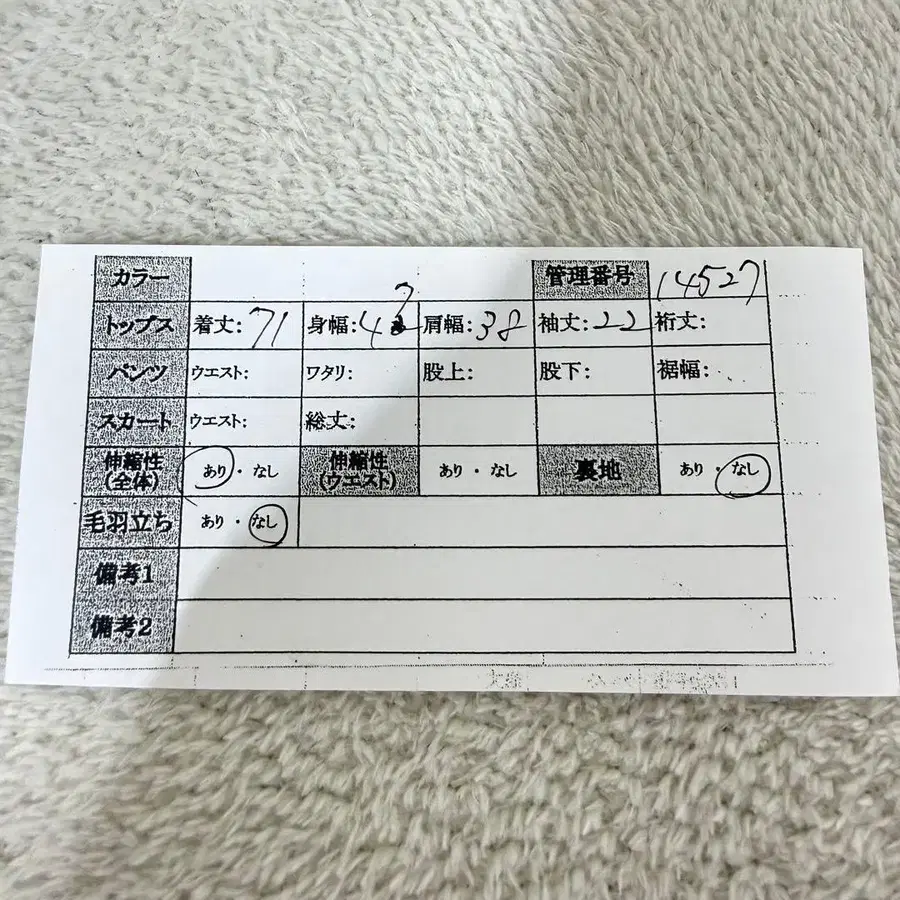 カラー 管理番号 14527
トップス 着丈:71 身幅:47 肩幅:38 袖丈:22 裄丈:
パンツ ウエスト: ワタリ: 股上: 股下: 裾幅:
スカート ウエスト: 総丈:
伸縮性 伸縮性
(全体) あり・なし (ウエスト) あり・なし 裏地 あり・なし
毛羽立ち あり・なし
備考1
備考2